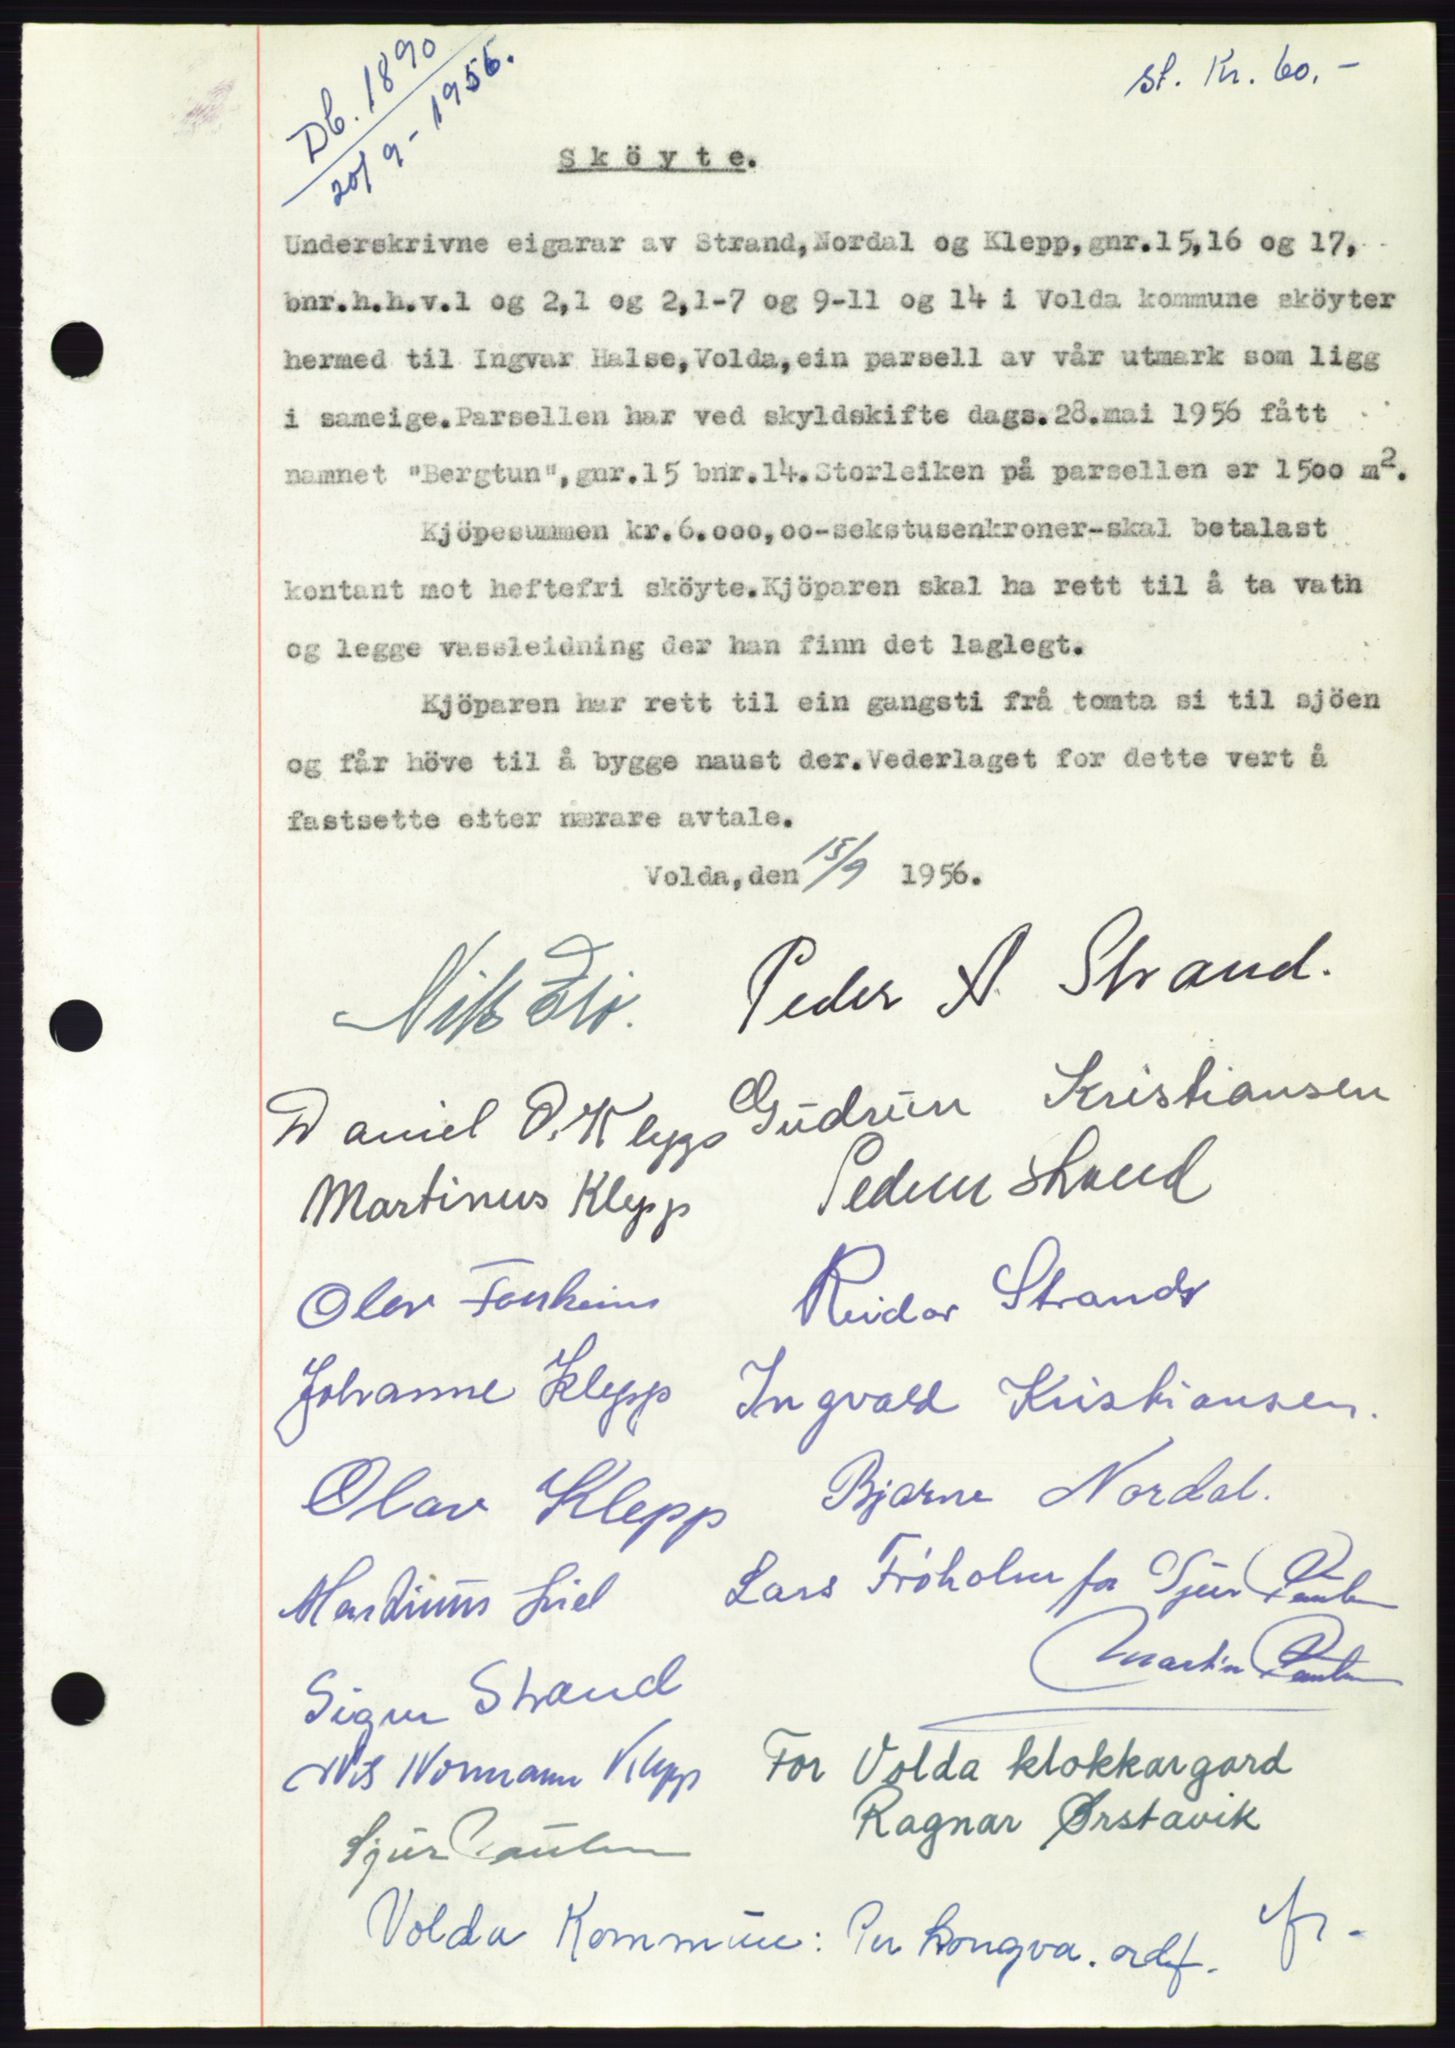 Db. 1890
20/9-1956.
st. Kr. 60.-
Sköyte.
Underskrivne eigarar av Strand,Nordal og Klepp,gnr.15,16 og 17,
bnr.h.h.v.1 og 2,1 og 2,1-7 og 9-11 og 14 i Volda kommune sköyter
hermed til Ingvar Halse,Volda,ein parsell av vår utmark som ligg
i sameige.Parsellen har ved skyldskifte dags.28.mai 1956 fått
namnet "Bergtun",gnr.15 bnr.14.Storleiken på parsellen er 1500 m².
Kjöpesummen kr.6.000,00-sekstusenkroner-skal betalast
kontant mot heftefri sköyte.Kjöparen skal ha rett til å ta vatn
og legge vassleidning der han finn det laglegt.
Kjöparen har rett til ein gangsti frå tomta si til sjöen
og får höve til å bygge naust der.Vederlaget for dette vert å
fastsette etter nærare avtale.
Volda,den 15/9 1956.
Peder A. Strand.
Daniel O. Klepp Gudrun Kristiansen
Martinus Klepp
Reidar Strand
Johanne Klepp Ingvald Kristiansen.
Olav Klepp Bjarne Nordal.
Lars Frøholm for Sjur Paulsen
Martin Paulsen
Strand
Nils Normann Klepp For Volda klokkargard
Ragnar Ørstavik
Sjur Paulsen
Volda Kommune: Per Kongsvoll. ordf.